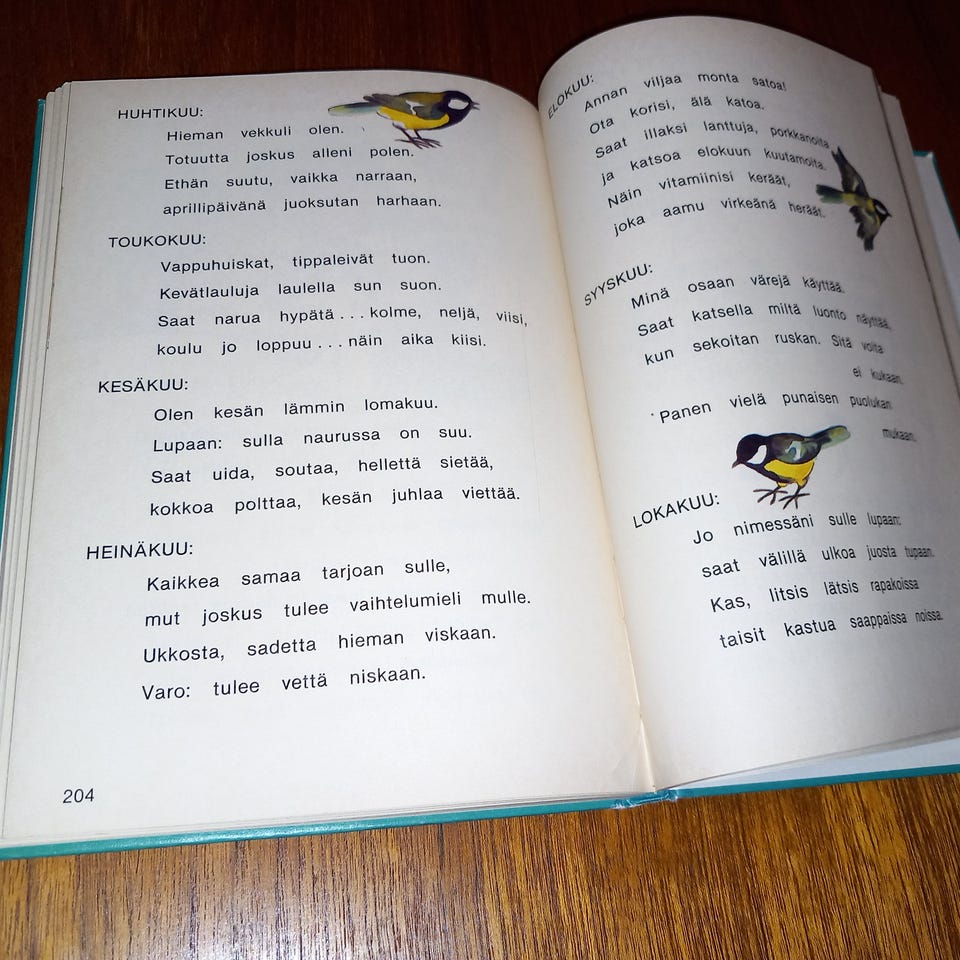 HUHTIKUU:
Hieman vekkuli olen.
Totuutta joskus alleni polen.
Ethän suutu, vaikka narraan,
aprillipäivänä juoksutan harhaan.
TOUKOKUU:
Vappuhuiskat, tippaleivät tuon.
Kevätlauluja laulella sun suon.
Saat narua hypätä . . . kolme, neljä, viisi,
koulu jo loppuu . . . näin aika kiisi.
KESÄKUU:
Olen kesän lämmin lomakuu.
Lupaan: sulla naurussa on suu.
Saat uida, soutaa, hellettä sietää,
kokkoa polttaa, kesän juhlaa viettää.
HEINÄKUU:
Kaikkea samaa tarjoan sulle,
mut joskus tulee vaihtelumieli mulle.
Ukkosta, sadetta hieman viskaan.
Varo: tulee vettä niskaan.
204
ELOKUU:
Annan viljaa monta satoa!
Ota korisi, älä katoa.
Saat illaksi lanttuja, porkkanoita
ja katsoa elokuun kuutamoita.
Näin vitamiinisi keräät,
joka aamu virkeänä heräät.
SYYSKUU:
Minä osaan värejä käyttää.
Saat katsella miltä luonto näyttää,
kun sekoitan ruskan. Sitä voita
ei kukaan.
Panen vielä punaisen puolukan
mukaan.
LOKAKUU:
Jo nimessäni sulle lupaan:
saat välillä ulkoa juosta tupaan.
Kas, litsis lätsis rapakoissa
taisit kastua saappaissa noissa.